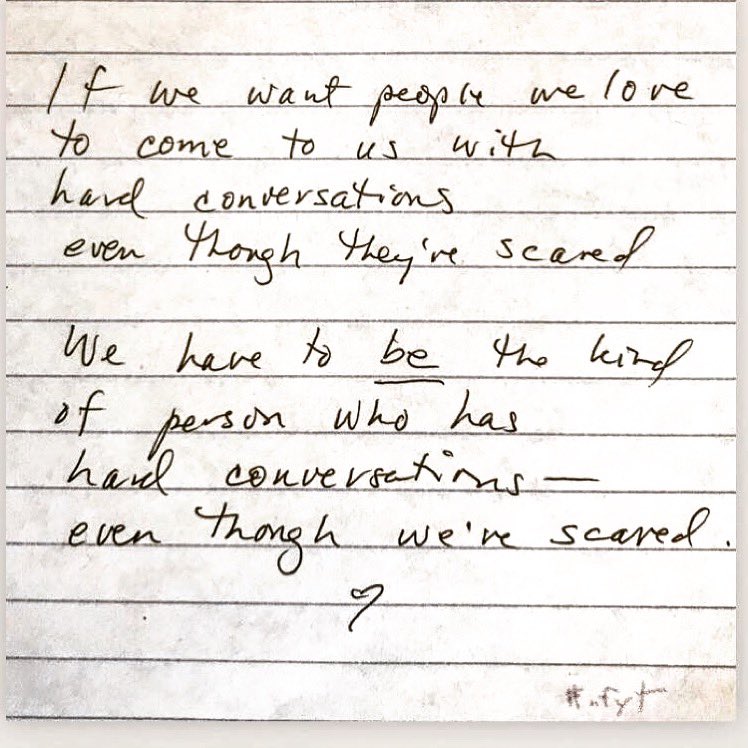 If we want people we love
to come to us with
hard conversations
even though they're scared
We have to be the kind
of person who has
hard conversations—
even though we're scared.